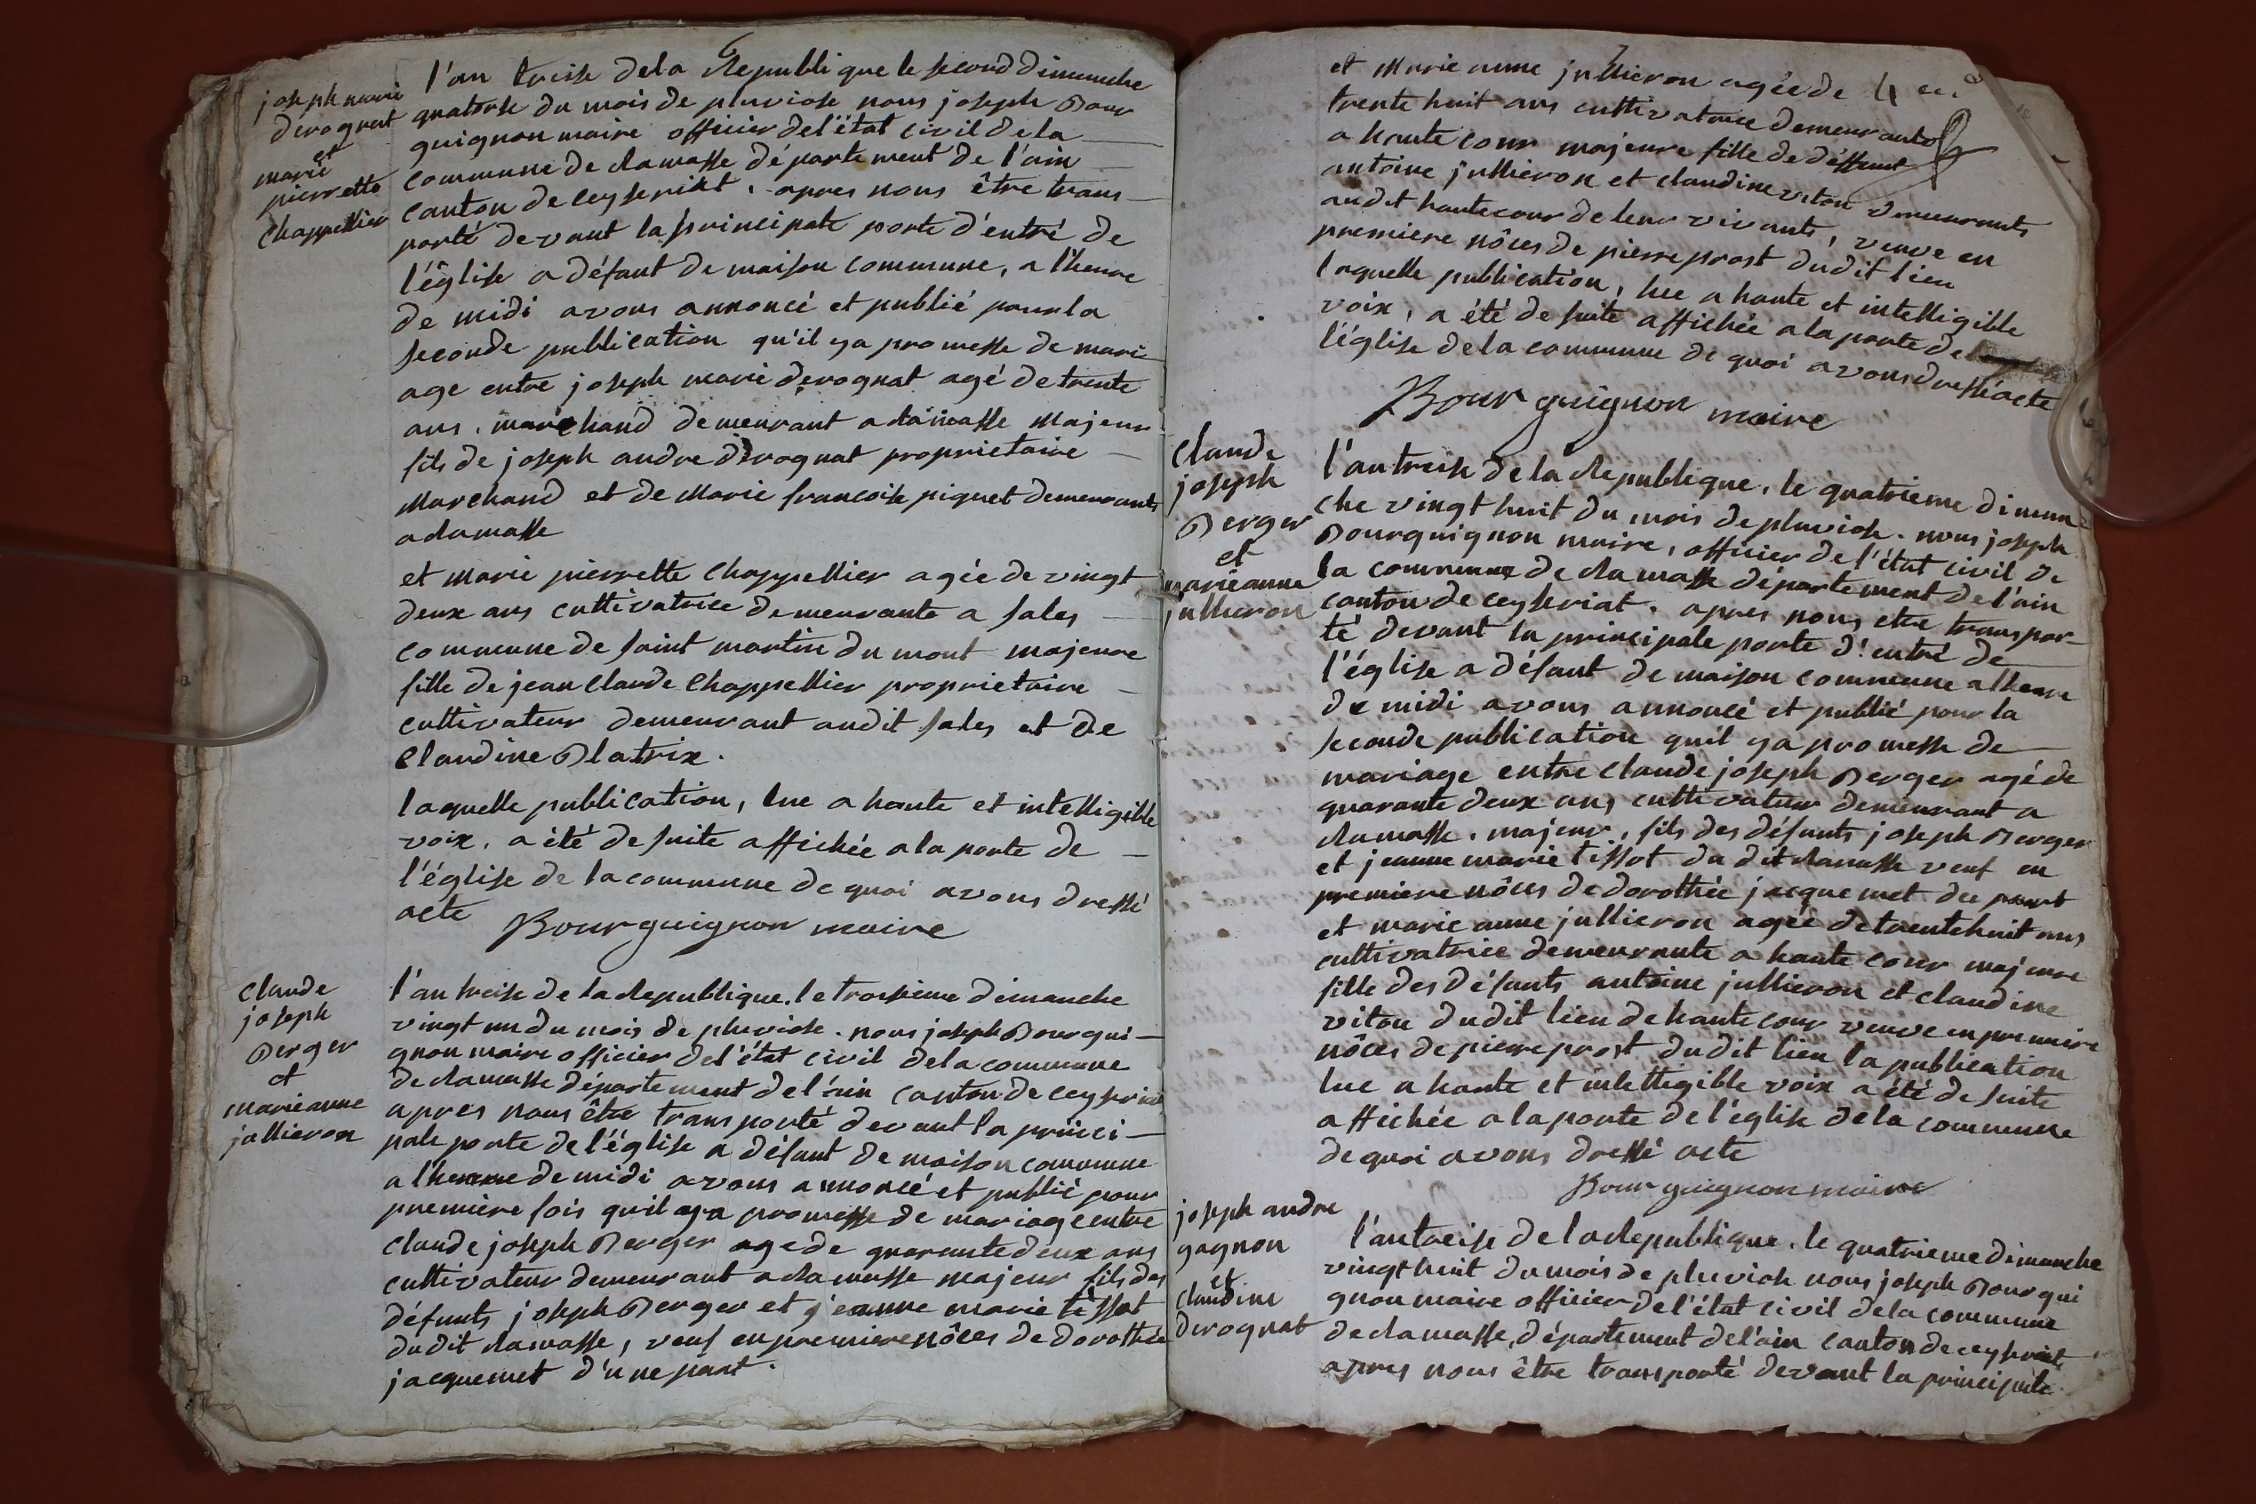 6
joseph marie
derognat
et
marie
pierrette
Chappellier
l'an treise dela Republique le second dimanche
quatorse du mois de pluviose nous joseph Bour
guignon maire officier del'état civil dela
commune de ramasse département de l'ain
canton de ceyseriat, apres nous être trans
porté devant la principale porte d'éntré de
l'église a défaut de maison commune, a l'heure
de midi avons annoncé et publié pour la
seconde publication qu'il ya promesse de mari
age entre joseph marie derognat agé de trente
ans, marchand demeurant a ramasse Majeur
fils de joseph andre derognat proprietaire
Marchand et de Marie francoise piquet demeurants
a ramasse
et Marie pierrette Chappellier agée de vingt
deux ans cultivatrice demeurante a sales
commune de saint martin du mont majeure
fille de jean claude Chappellier proprietaire
cultivateur demeurant audit sales et de
Claudine Platrix.
laquelle publication, lue a haute et intelligible
voix, a été de suite affichée a la porte de
l'église de la commune de quoi avons dressé
acte Bourguignon maire
claude
joseph
Berger
et
marieanne
jullieron
l'an treise de la Republique, le troisieme dimanche
vingt un du mois de pluviose. nous joseph Bourgui-
gnon maire officier del'état civil dela commune
de ramasse département de l'ain canton de ceyseriat
apres nous être transporté devant la princi-
pale porte de l'église a défaut de maison commune
a l'heure de midi avons annoncé et publié pour
première fois qu'il ya promesse de mariage entre
Claude joseph Berger age de quarante deux ans
cultivateur demeurant a ramasse majeur fils des
défunts joseph Berger et jeanne marie tissot
dudit ramasse, veuf en premiere nôces de dorothée
jacquemet d'une part.
7
et Marie anne jullieron agée de
trente huit ans cultivatrice demeurante
a haute cour majeure fille de déffunt
antoine jullieron et claudine viton demeurants
audit hautecour de leur vivants, veuve en
premiere nôces de pierre prost dudit lieu
laquelle publication, lue a haute et intelligible
voix, a été de suite affichée a la porte de
l'église dela commune de quoi avons dressé acte
Bourguignon maire
claude
joseph
Berger
et
marieanne
jullieron
l'an treise de la Republique, le quatrieme diman
che vingt huit du mois de pluviose. nous joseph
Bourguignon maire, officier de l'état civil de
la commune de ramasse département de l'ain
canton de ceyseriat. apres nous etre transpor
té devant la principale porte d'entré de
l'église a défaut de maison commune a l'heure
de midi avons annoncé et publié pour la
seconde publication quil ya promesse de
mariage entre claude joseph Berger agé de
quarante deux ans cultivateur demeurant a
ramasse, majeur, fils des défunts joseph Berger
et jeanne marie tissot du dit ramasse veuf en
premiere nôces de dorothée jacquemet du part
et marie anne jullieron agée de trente huit ans
cultivatrice demeurante a haute cour majeure
fille des défunts antoine jullieron et claudine
viton dudit lieu de haute cour veuve en premiere
nôces de pierre prost dudit lieu la publication
lue a haute et intelligible voix a été de suite
affichée a la porte de l'église dela commune
de quoi avons dressé acte
Bourguignon maire
joseph andre
gagnon
et
claudine
derognat
l'an treise de la Republique. le quatrieme dimanche
vingt huit du mois de pluviose nous joseph Bourgui
gnon maire officier de l'état civil dela commune
de ramasse, département de l'ain canton de ceyseriat
apres nous être transporté devant la principale